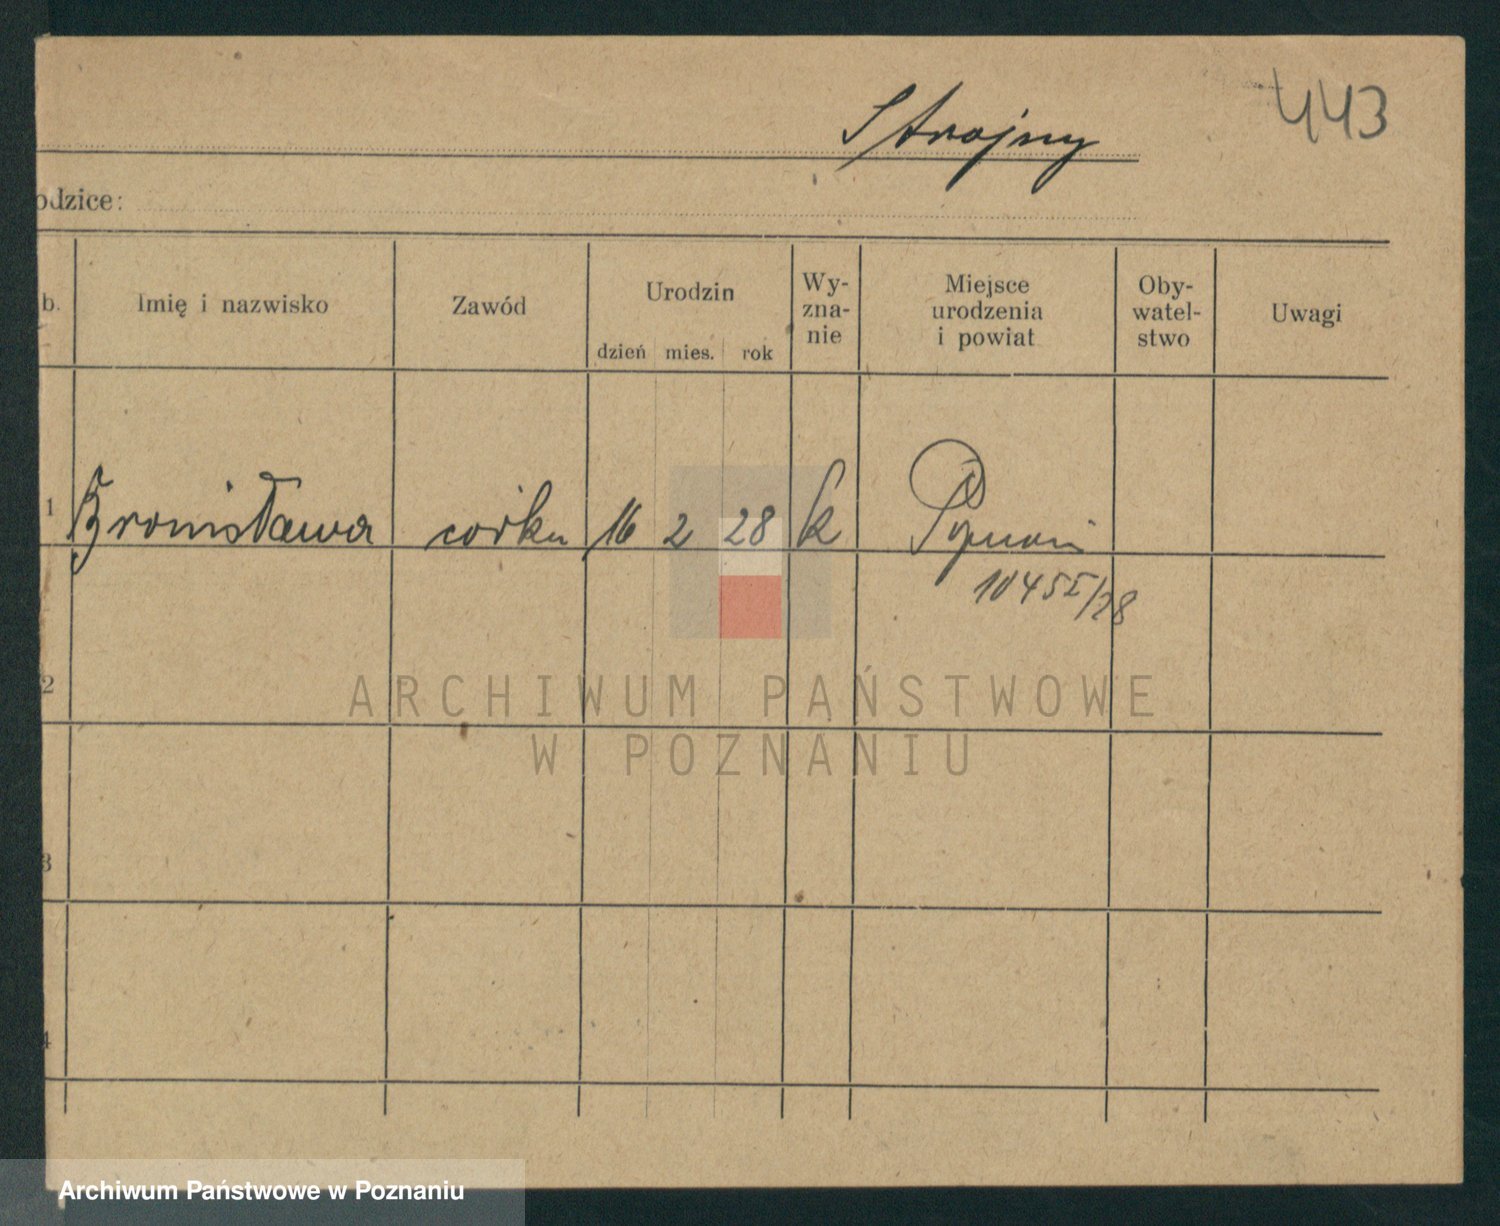 443
Strojny
odzice:
b. Imię i nazwisko Zawód Urodzin dzień mies. rok Wy-znanie Miejsce urodzenia i powiat Oby-watel-stwo Uwagi
1 Bronisława córka 16 2 28 k Poznań
1045I/28
2
ARCHIWUM PAŃSTWOWE
W POZNANIU
3
4
Archiwum Państwowe w Poznaniu